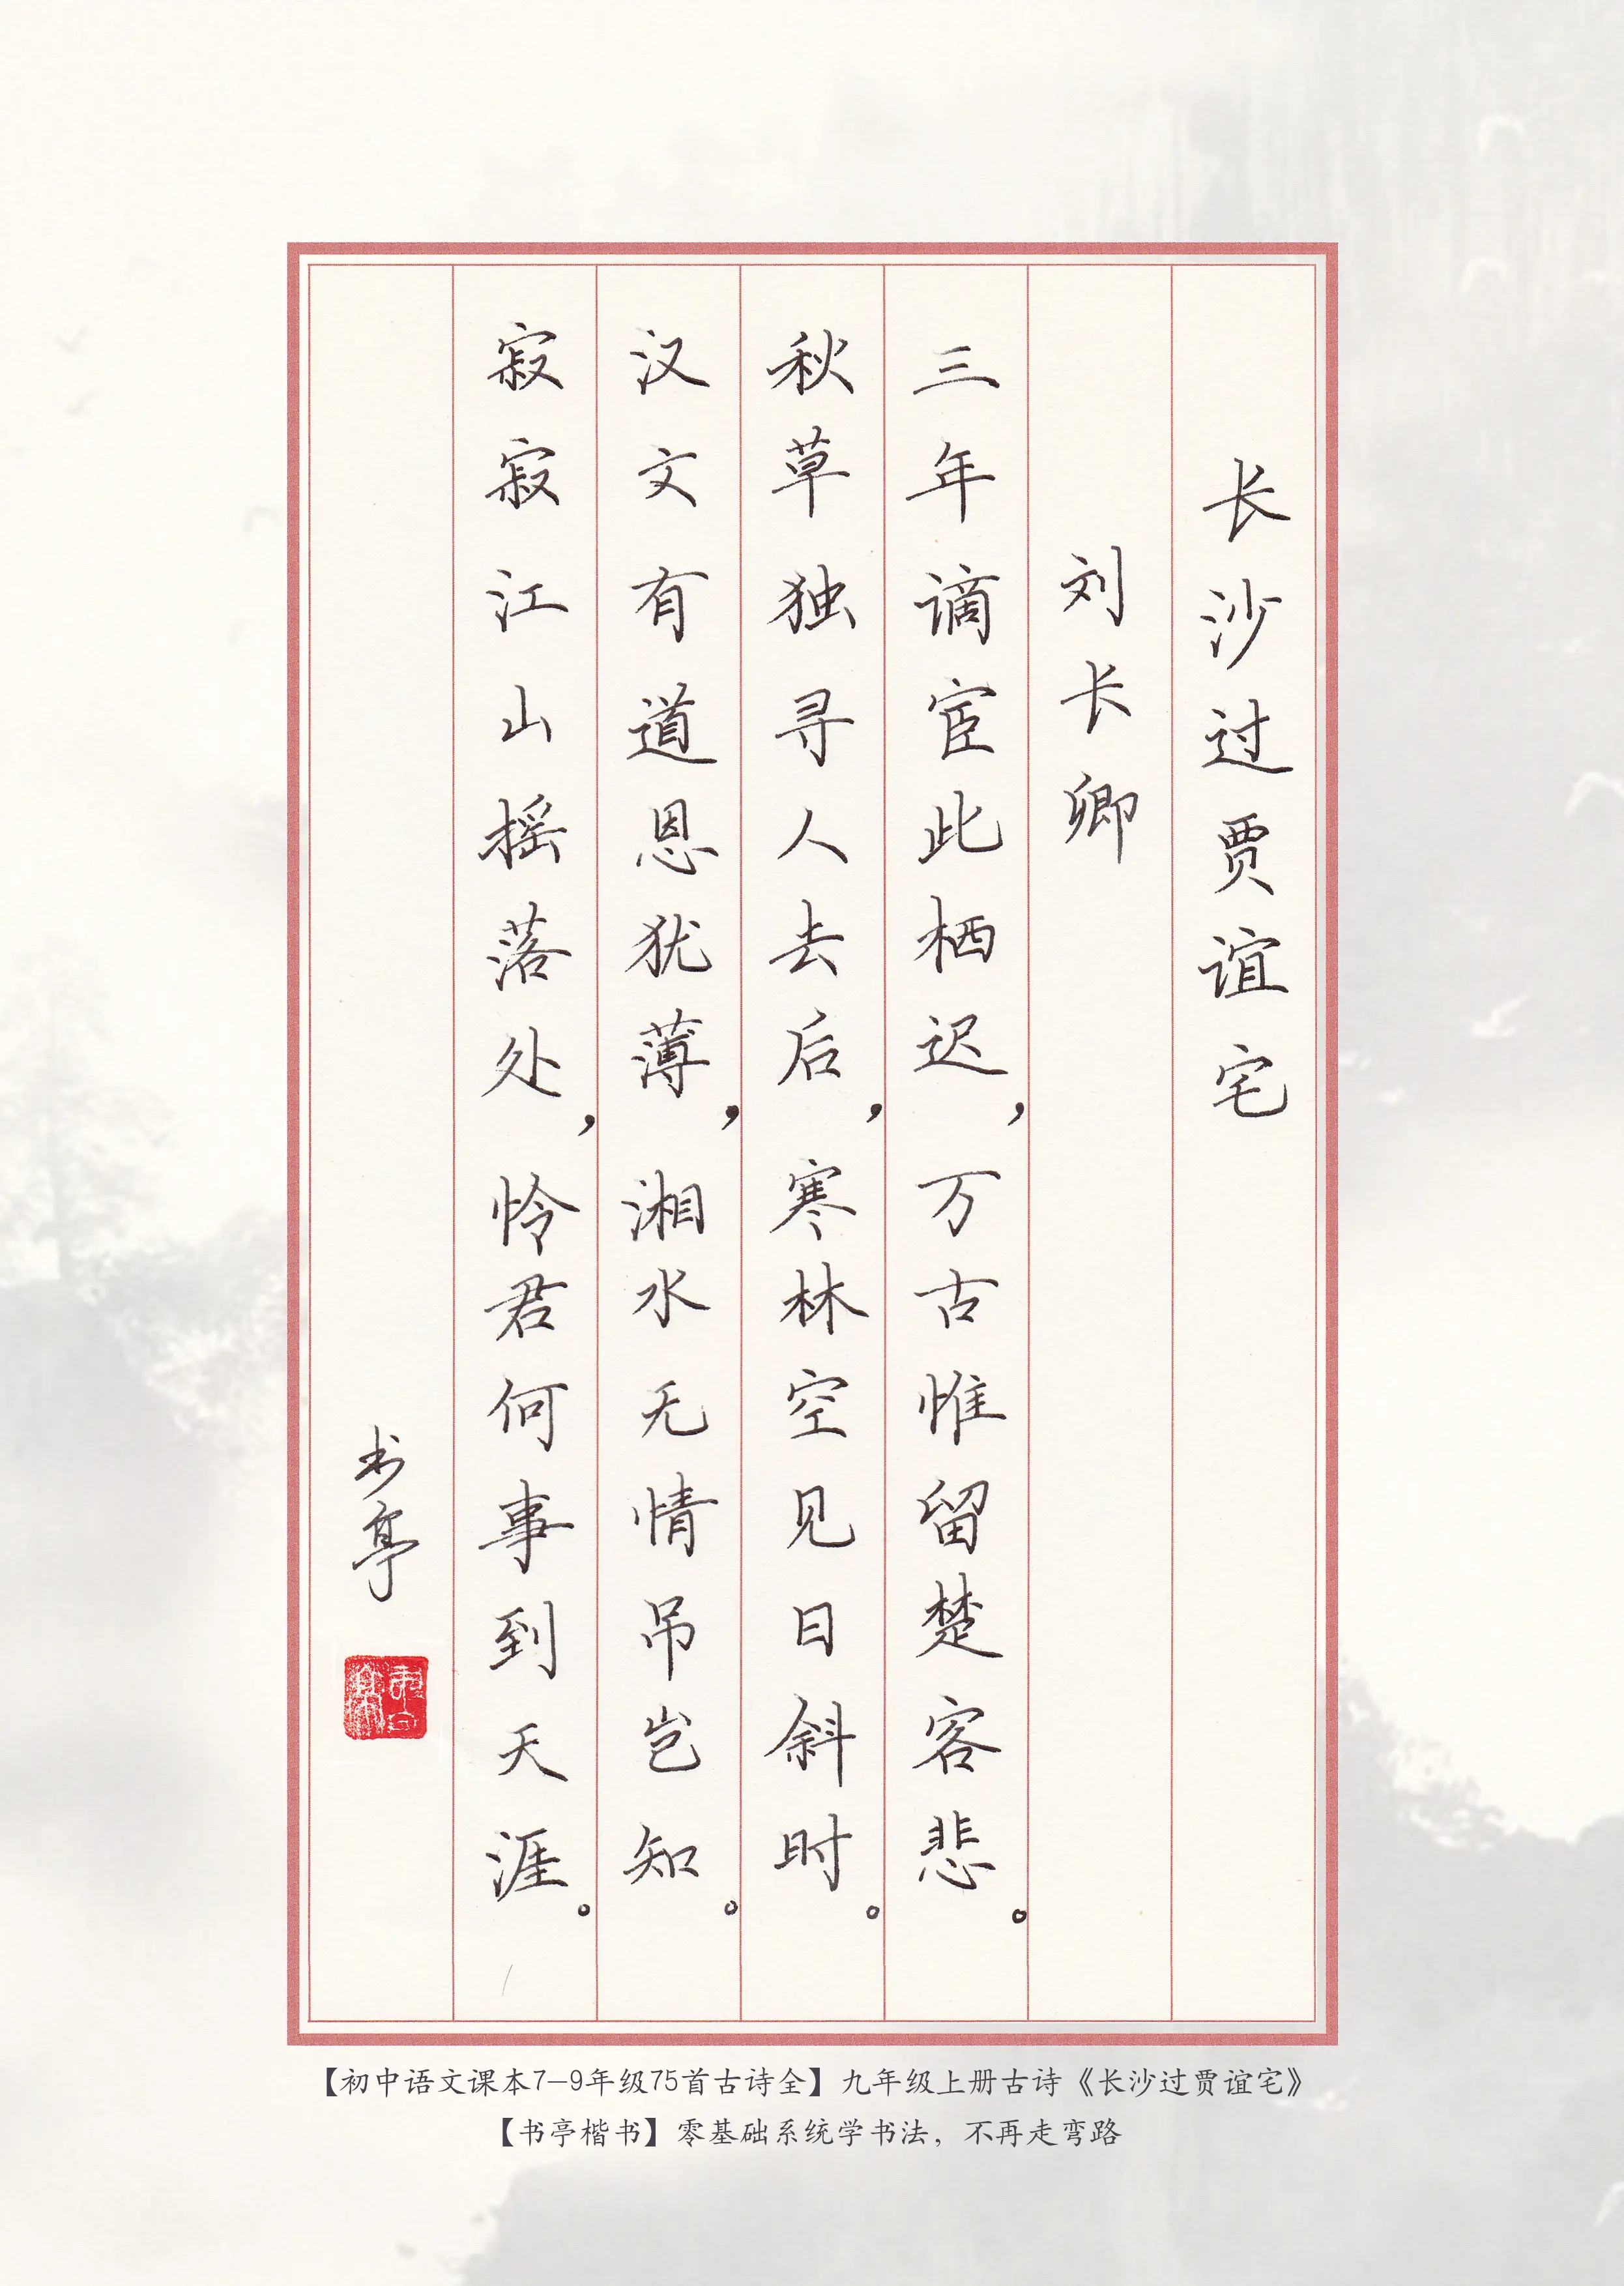 长沙过贾谊宅
刘长卿
三年谪宦此栖迟，万古惟留楚客悲。
秋草独寻人去后，寒林空见日斜时。
汉文有道恩犹薄，湘水无情吊岂知。
寂寂江山摇落处，怜君何事到天涯。
书亭
【初中语文课本7-9年级75首古诗全】九年级上册古诗《长沙过贾谊宅》
【书亭楷书】零基础系统学书法，不再走弯路